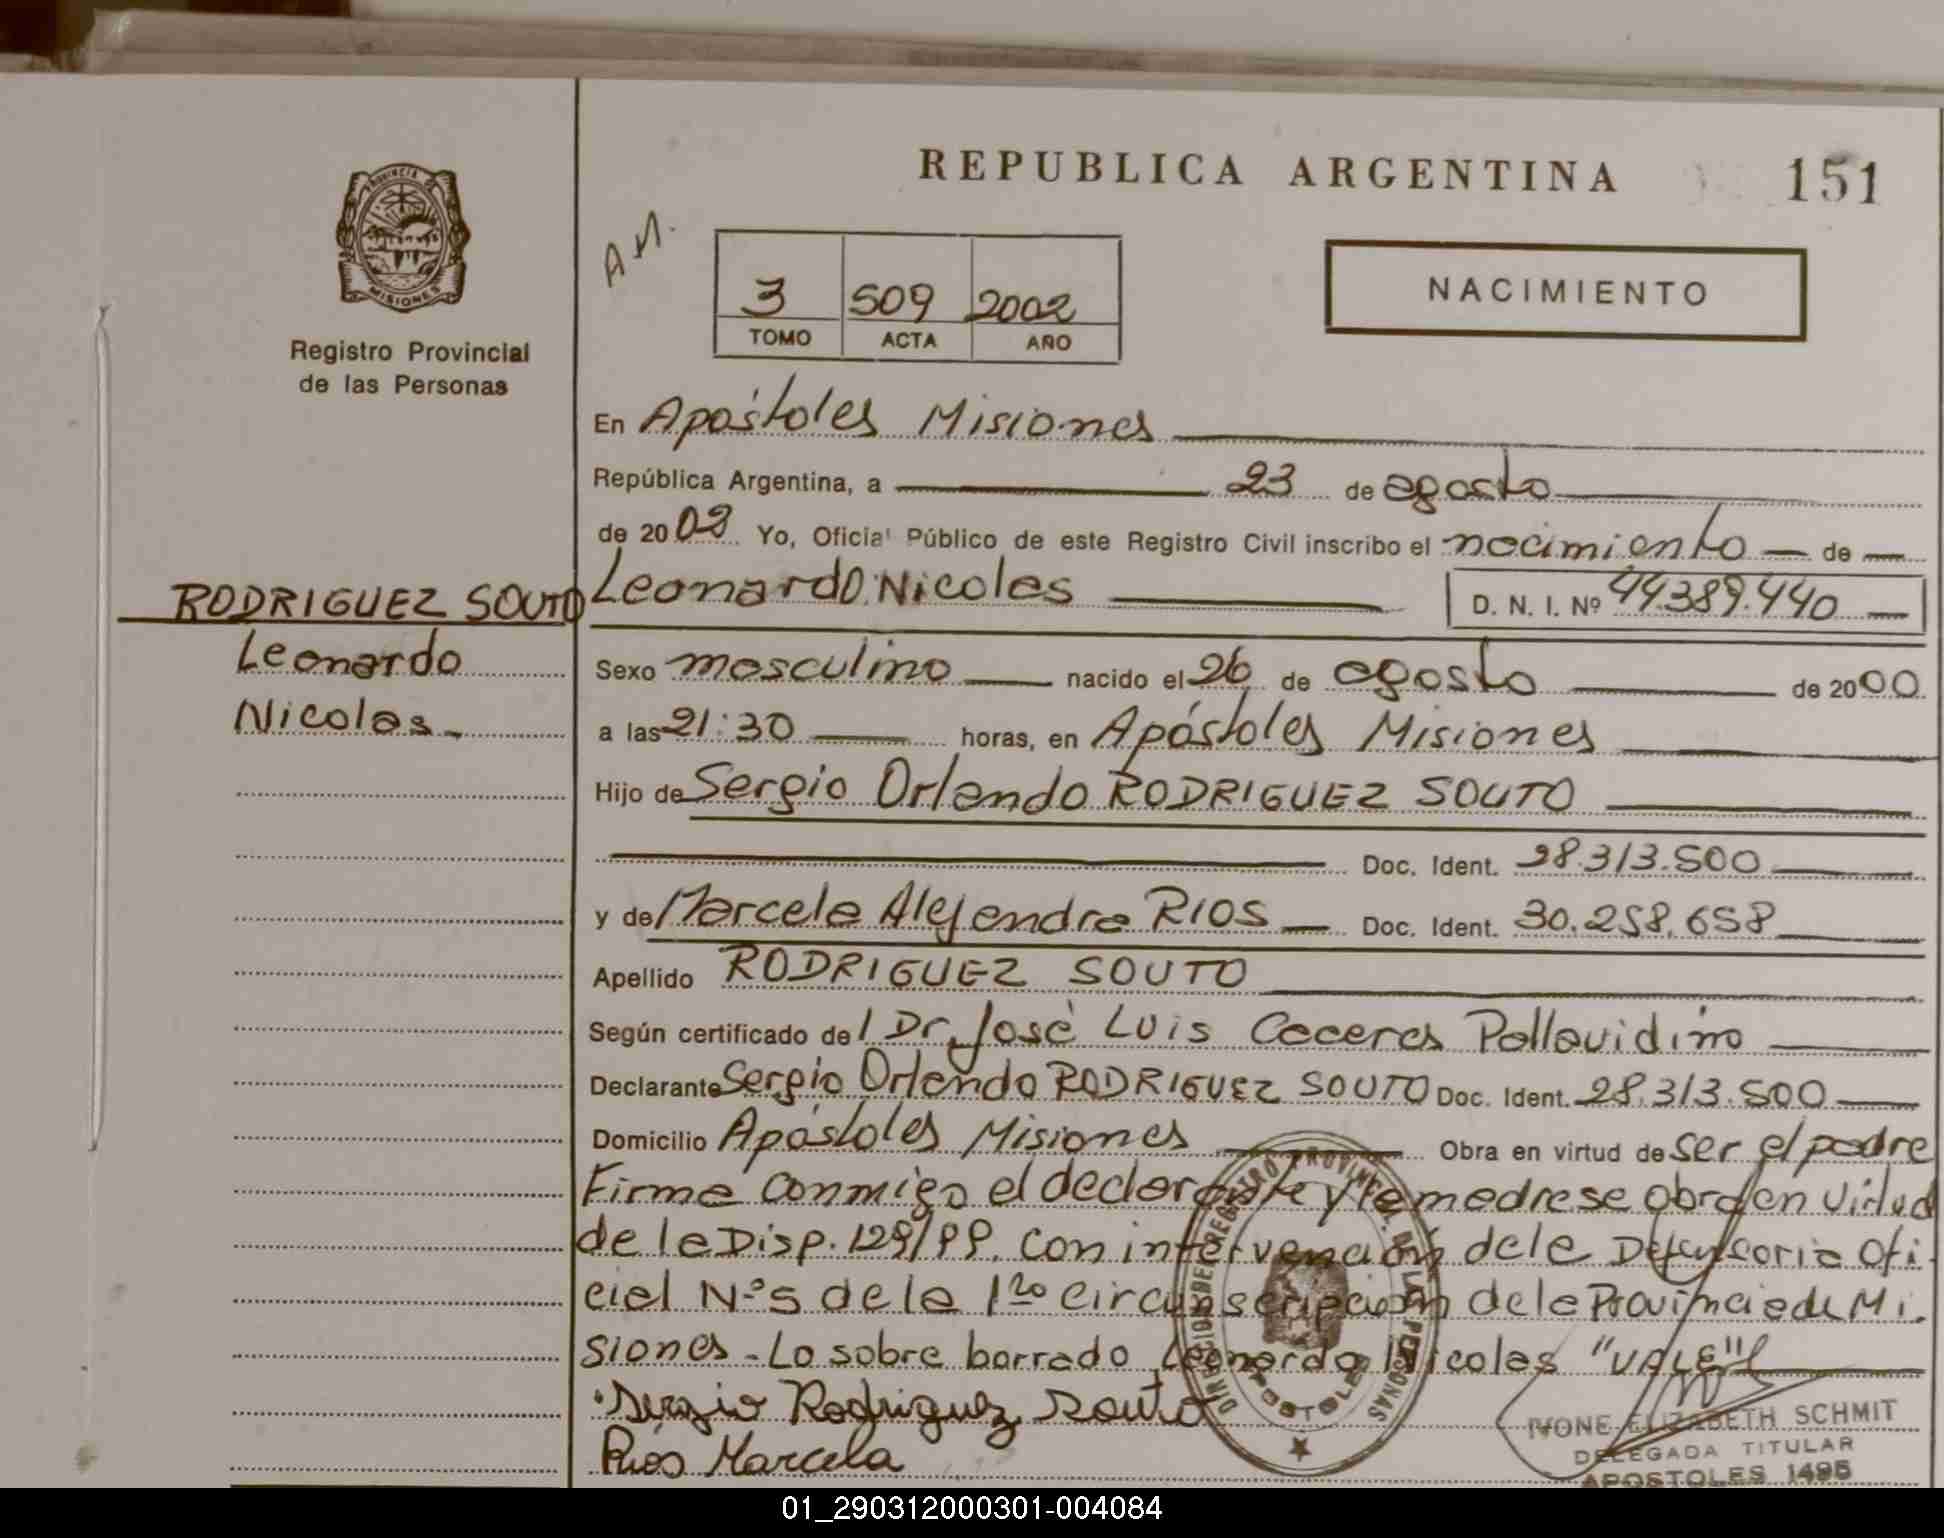 REPUBLICA ARGENTINA
151
PROVINCIA DE
MISIONES
Registro Provincial
de las Personas
A.M.
3 509 2002
TOMO ACTA AÑO
NACIMIENTO
En Apóstoles Misiones
República Argentina, a 23 de agosto
de 2002 Yo, Oficial Público de este Registro Civil inscribo el nacimiento de
RODRIGUEZ SOUTO Leonardo Nicolas D. N. I. Nº 44.389.440
Leonardo
Nicolas.
Sexo masculino nacido el 26 de agosto de 2000
a las 21:30 horas, en Apóstoles Misiones
Hijo de Sergio Orlando RODRIGUEZ SOUTO
Doc. Ident. 28.313.500
y de Marcela Alejandra RIOS Doc. Ident. 30.258.658
Apellido RODRIGUEZ SOUTO
Según certificado del Dr. José Luis Caceres Pallavidino
Declarante Sergio Orlando RODRIGUEZ SOUTO Doc. Ident. 28.313.500
Domicilio Apóstoles Misiones Obra en virtud de ser el padre
Firma conmigo el declarante y la madre se obra en virtud
de la Disp. 129/99. con intervención de la Defensoria Ofi-
cial Nº 5 de la 1ra circunscripción de la Provincia de Mi-
siones - Lo sobre borrado Leonardo Nicolas "VALE"
Sergio Rodriguez Souto
Ríos Marcela
DIRECCION DEL REGISTRO PROVINCIAL DE LAS PERSONAS
APOSTOLES
IVONE ELIZABETH SCHMIT
DELEGADA TITULAR
APOSTOLES 1495
01_290312000301-004084